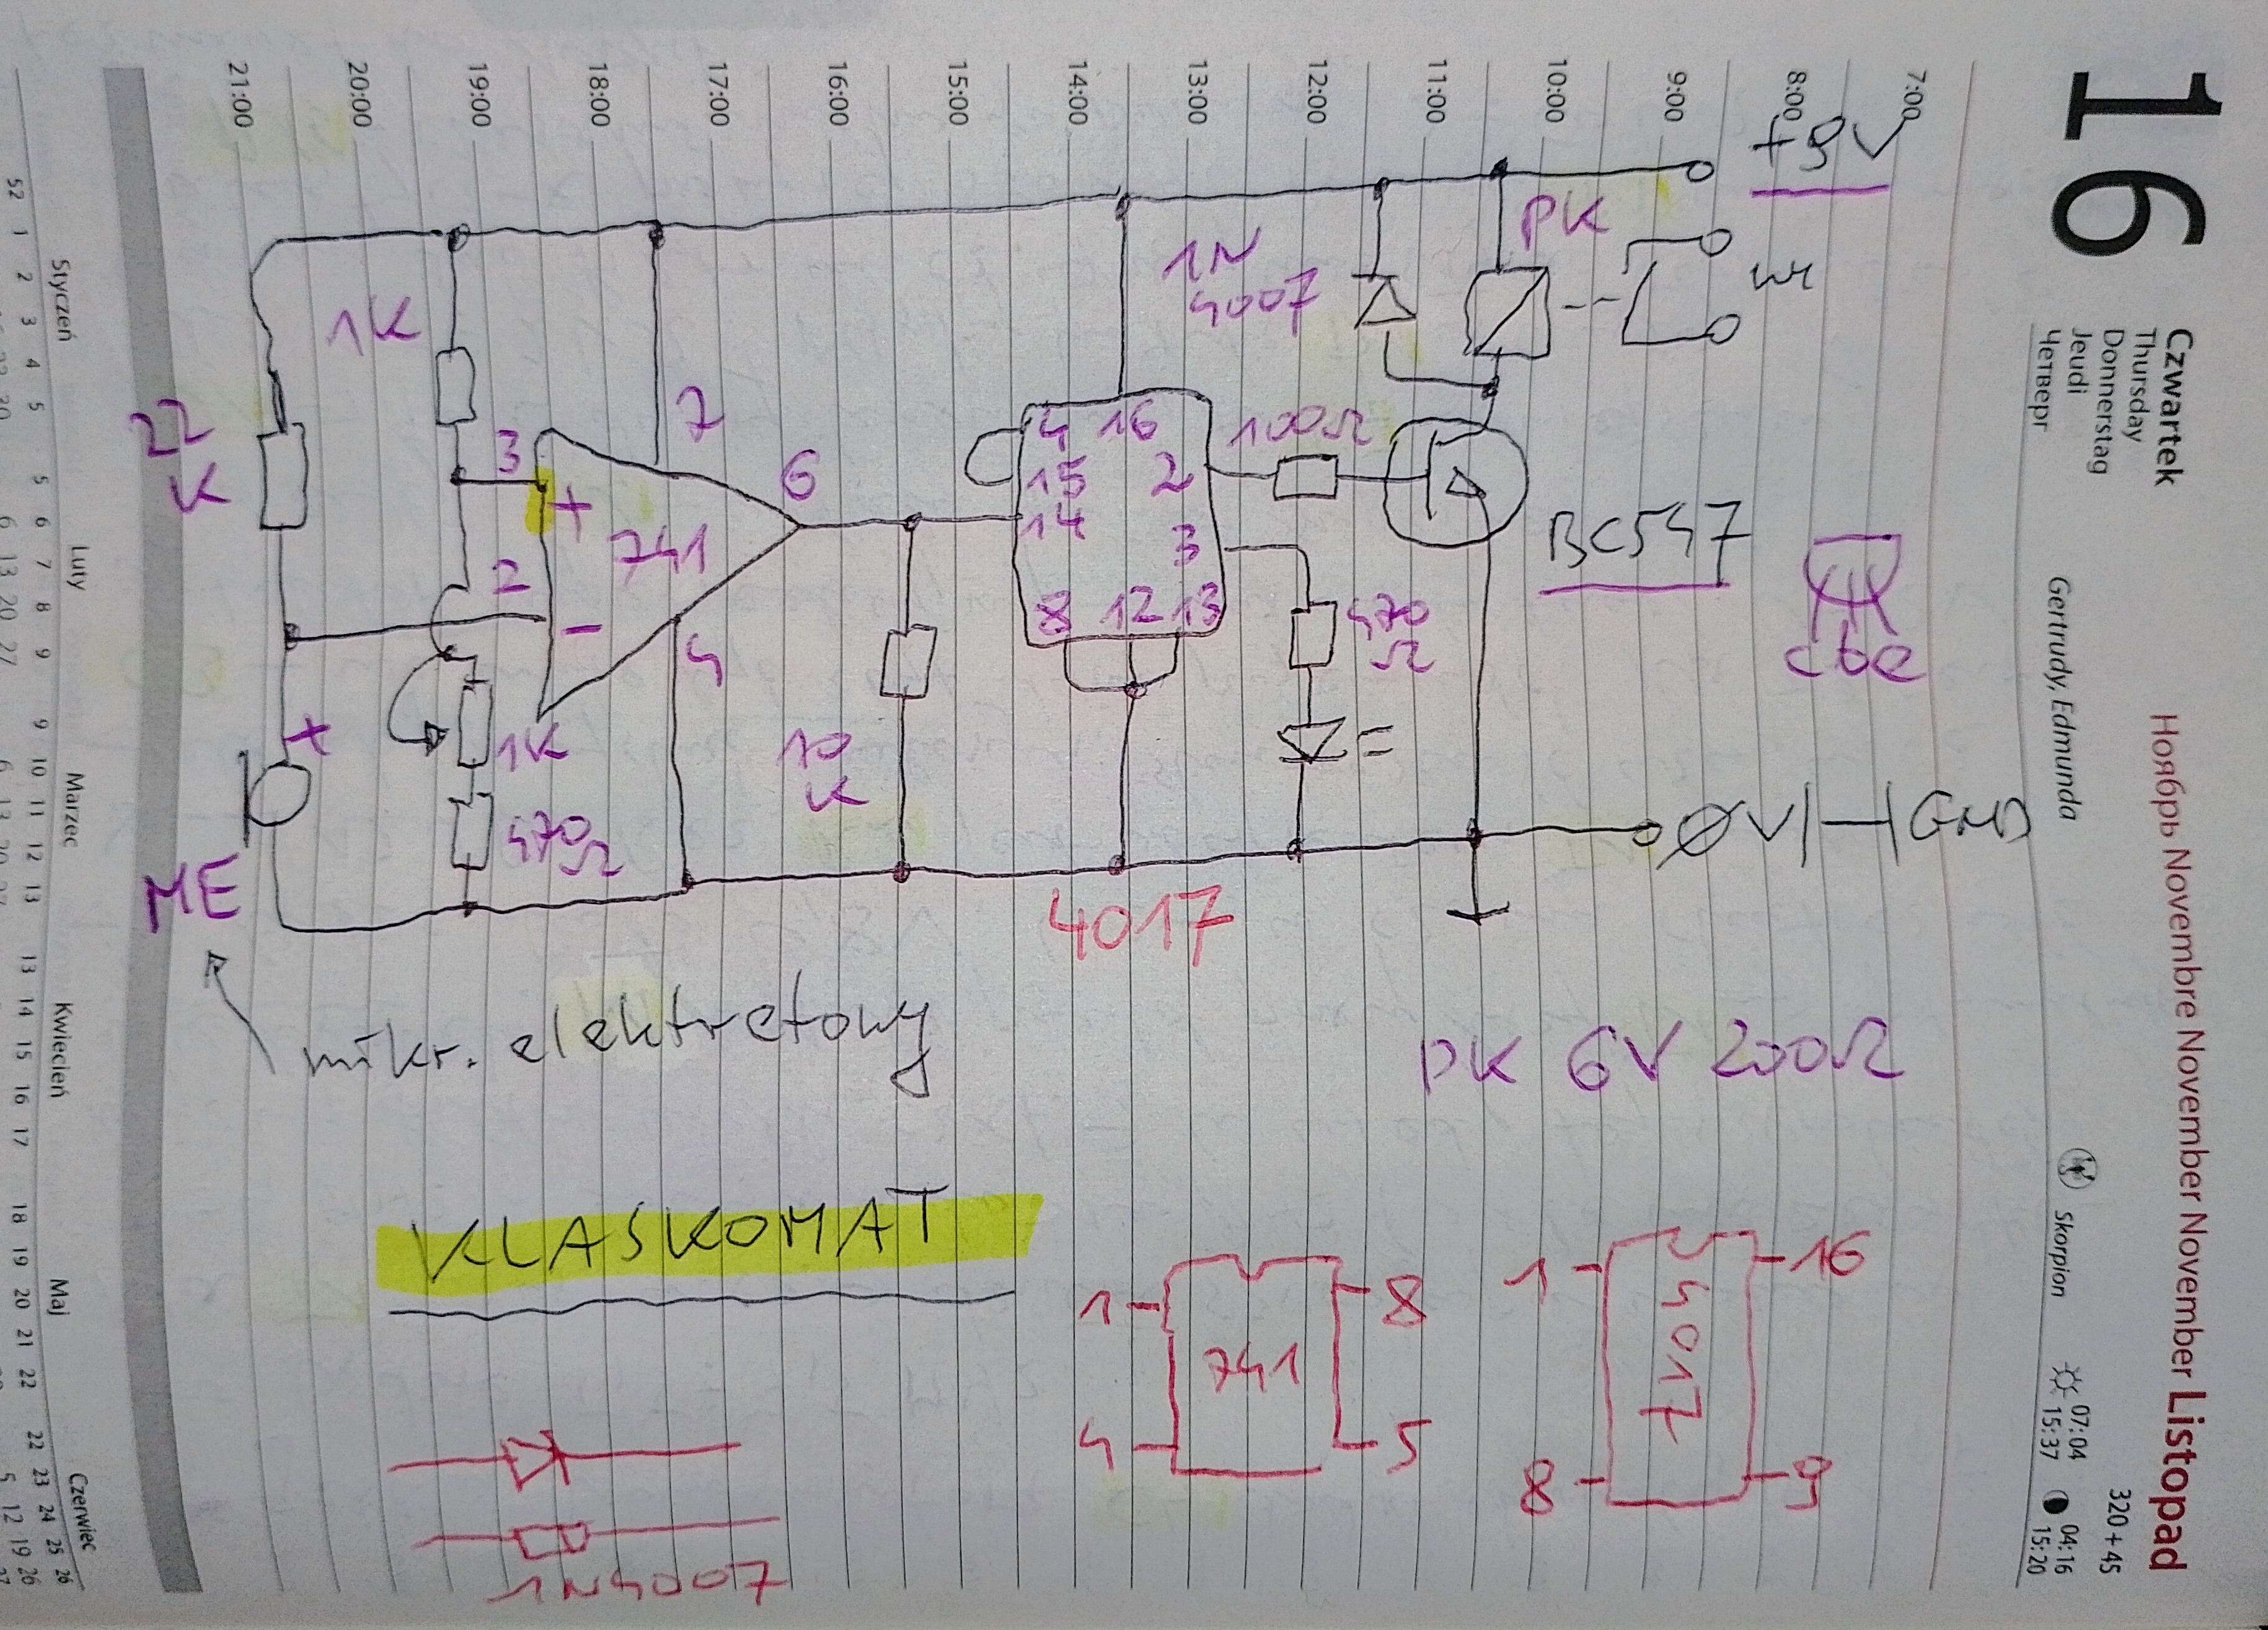 16
Czwartek
Thursday
Donnerstag
Jeudi
Четверг
Gertrudy, Edmunda
Ноябрь Novembre November November Listopad
Skorpion
07:04
15:37
04:16
15:20
320+45
7:00
8:00
9:00
10:00
11:00
12:00
13:00
14:00
15:00
16:00
17:00
18:00
19:00
20:00
21:00
+9V
PK
1N
4007
1K
22
K
3
+
2
-
741
7
6
4
4 16
15 2
14
3
8 12 13
100Ω
BC547
cbe
470
Ω
1K
470Ω
10
K
+
ME
4017
ØV
GND
mikr. elektretowy
PK 6V 200Ω
KLASKOMAT
1 8
741
4 5
1 16
4017
8 9
1N4007
Styczeń
Luty
Marzec
Kwiecień
Maj
Czerwiec
52 1 2 3 4 5
5 6 7 8 9
6 13 20 27
9 10 11 12 13
13 14 15 16 17
18 19 20 21 22
22 23 24 25 26
5 12 19 26